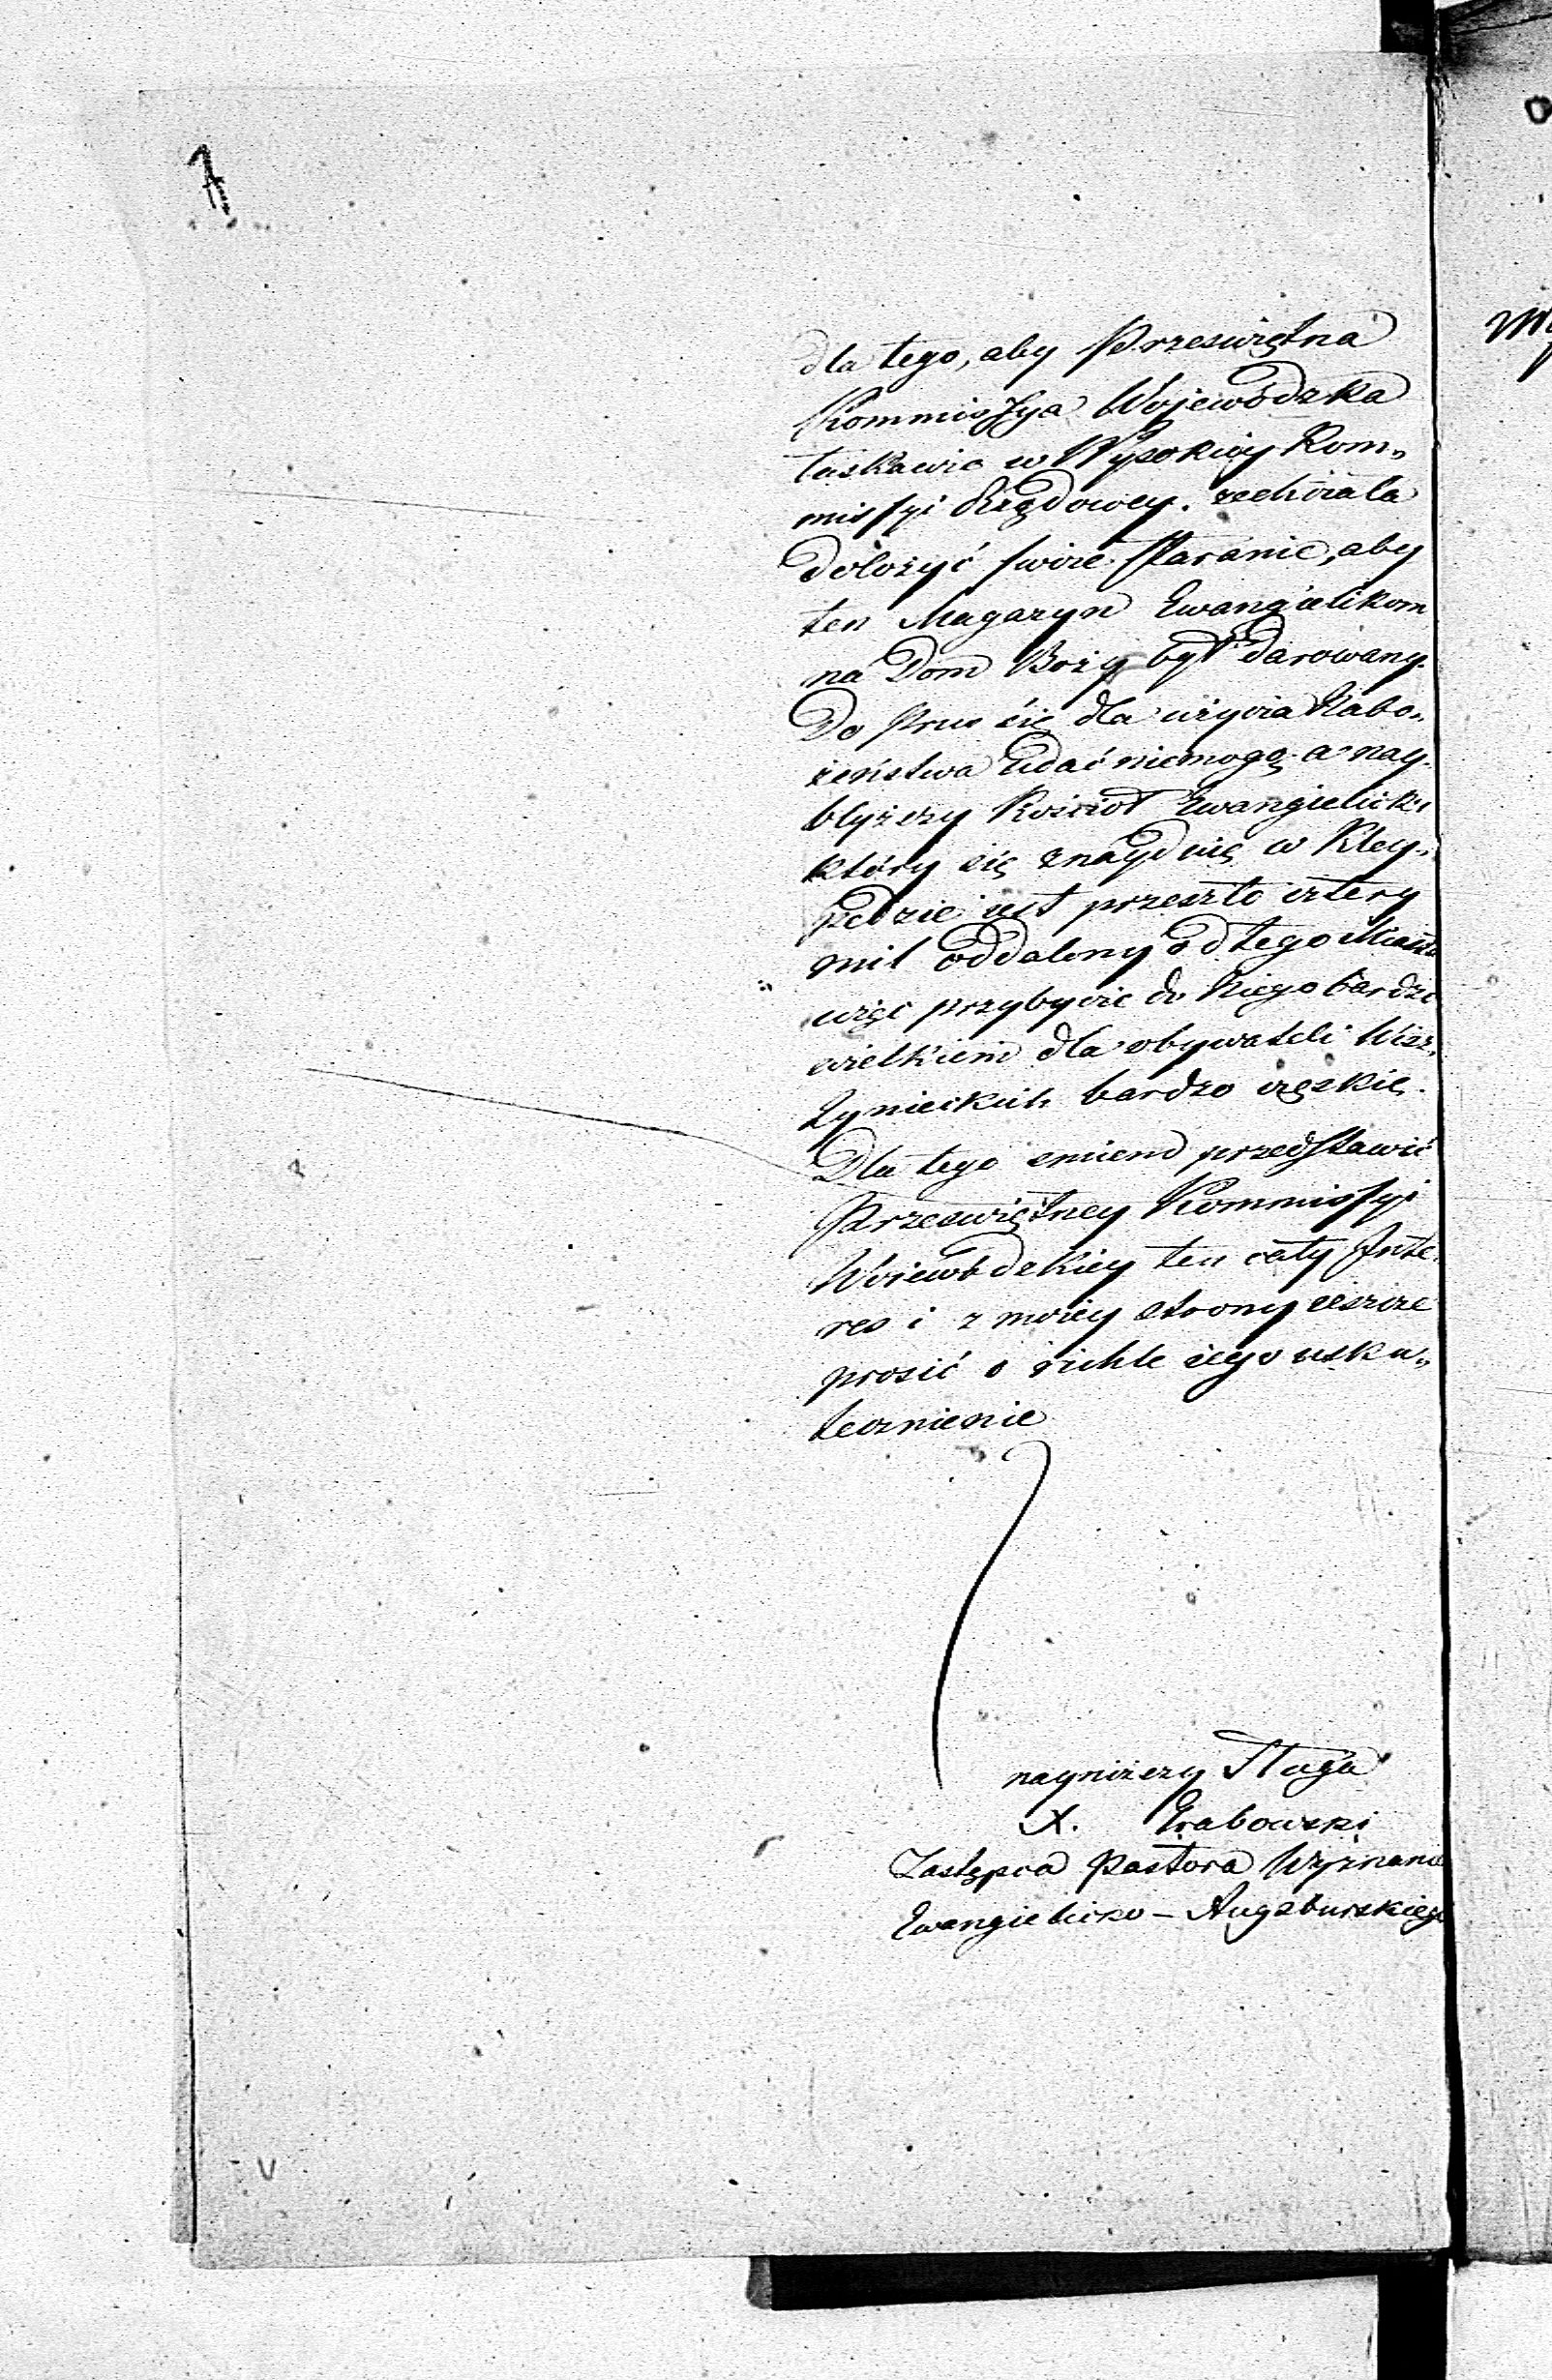 7
dla tego, aby Przeswiętna
Kommissya Wojewódzka
łaskawie w Wysokiey Kom„
missyi Rządowey. zechciała
dołożyć swoie staranie, aby
ten Magazyn Ewangielikom
na Dom Boży był darowany.
Do Prus się dla użycia Nabo„
żeństwa udać niemogą a nay„
bliższy Kościoł Ewangielicki
który się znayduię w Kley„
pedzie iest przeszło cztery
mil oddalony od tego Miasta
więc przybycie do Niego bardzo
wielkiem dla obywateli Wisz„
tynieckich bardzo cięzkię.
Dla tego smiem przedstawić
Przeswiętney Kommissyi
Woiewódzkiey ten cały Inte„
res i z moiey strony ieszcze
prosić o richłe iego usku„
tecznienie
nayniższy Sługa
X. Grabowski
Zastępca Pastora Wyznania
Ewangielicko - Augsburskiego